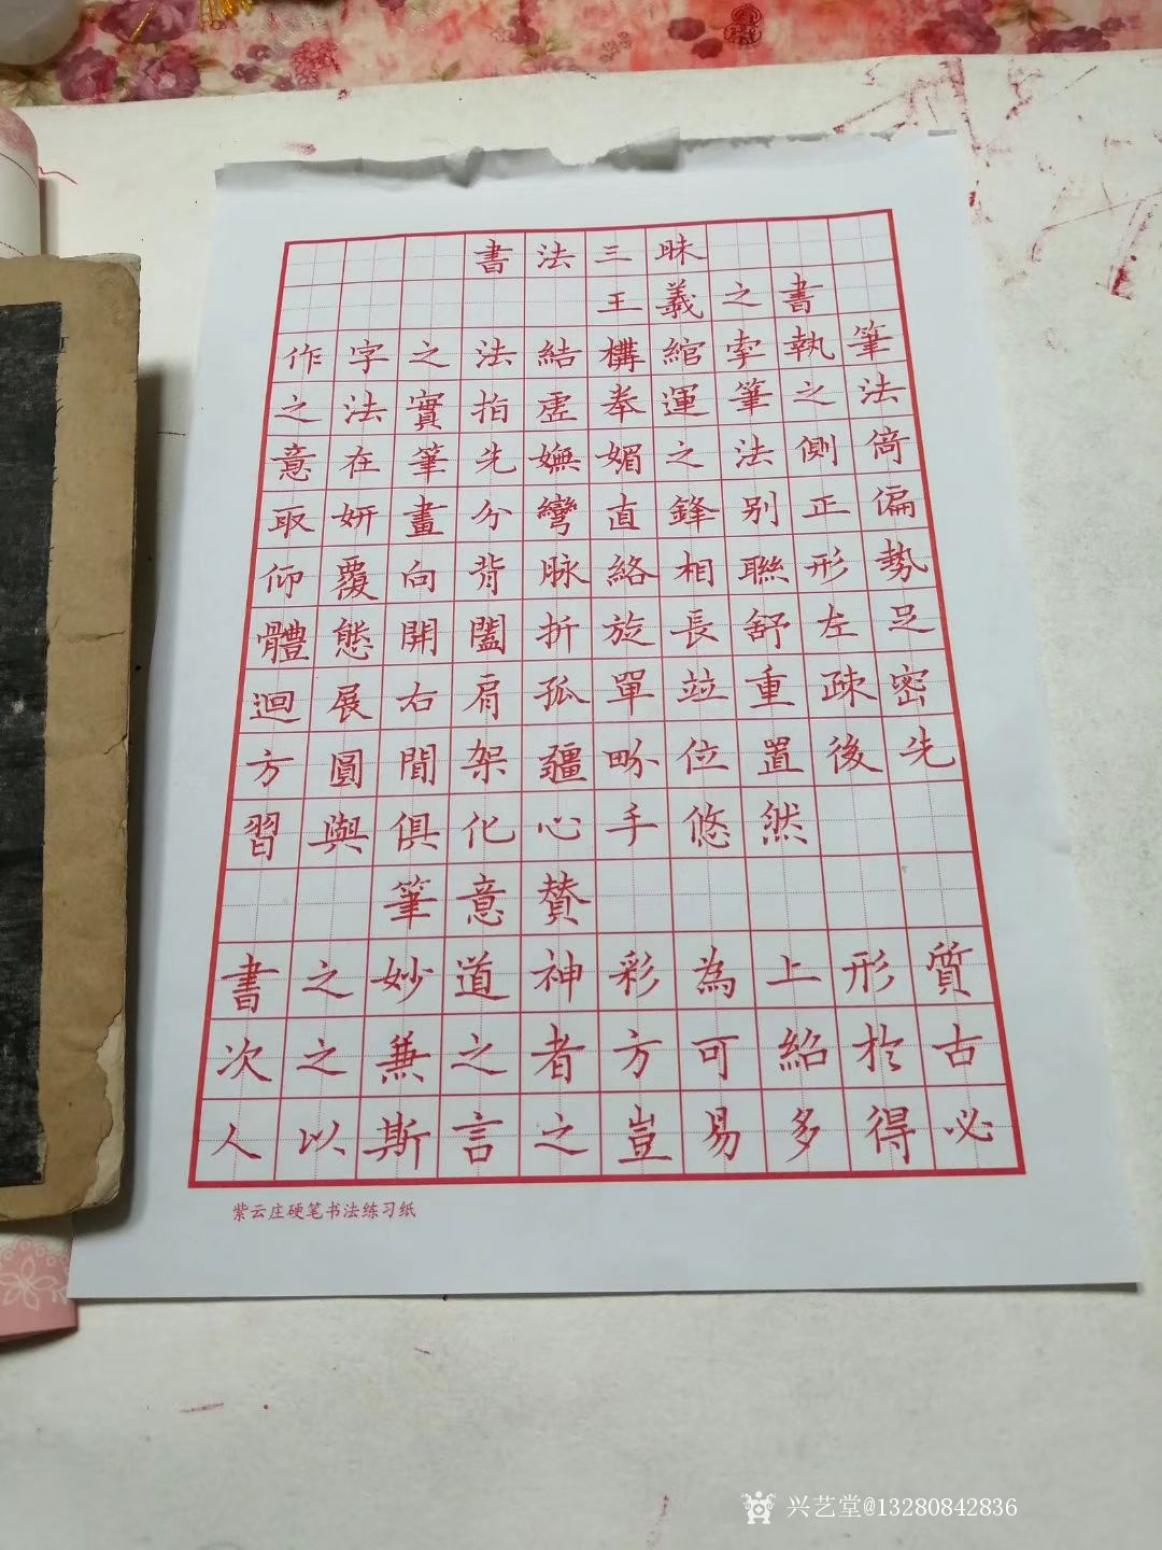 書法三昧
王羲之書
作字之法結構綰牽執筆
之法實指虛拳運筆之法
意在筆先嫵媚之法側筒
取妍畫分彎直鋒別正偏
仰覆向背脉絡相聯形勢
體態開闔折旋長舒左足
迴展右肩孤單竝重疎密
方圓間架疆畛位置後先
習與俱化心手悠然
筆意贊
書之妙道神彩為上形質
次之兼之者方可紹於古
人以斯言之豈易多得必
紫云庄硬笔书法练习纸
兴艺堂@13280842836